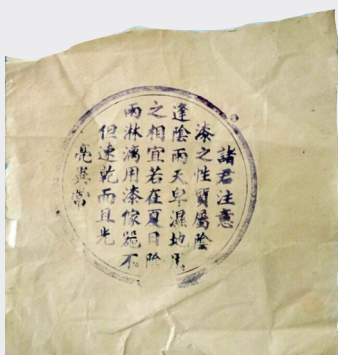 諸君注意
漆之性質屬陰
逢陰雨天卑濕地用
之相宜若在夏日陰
雨淋漓用漆像器不
但速乾而且光
亮異常